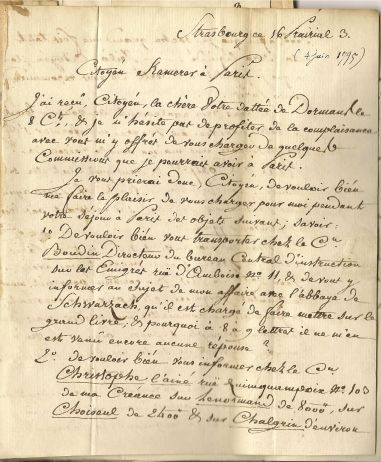 Strasbourg ce 16 Prairial 3.
(4 juin 1795)
Citoyen Kamerer à Paris.
J'ai reçu, Citoyen, la chère Votre dattée de Dormans le
8 Ct, & je n'hésite pas de profiter de la complaisance
avec vous m'y offret de vous charger de quelques
Commissions que je pourrais avoir à Paris.
Je vous prierai donc, Citoyen, de vouloir bien
me faire le plaisir, de vous charger pour moi pendant
votre séjour à Paris des objets suivant; savoir:
1o De vouloir bien vous transporter chez le Cn
Boudin Directeur du bureau Central d'instruction
sur les Emigrés rue d'Amboise No 11, & de vous y
informer au sujet de mon affaire avec l'abbaye de
Schwarzach, qu'il est chargé de faire mettre sur le
grand livre, & pourquoi à 8 a 9 lettres il ne m'en
est venue encore aucune réponse?
2o. de vouloir bien vous informer chez le Cn
Christophe l'ainé rue Quinquempoix No 103
de ma Creance sur Lenormand de 8000, sur
Choiseul de 2400 & sur Chalgrin d'environ